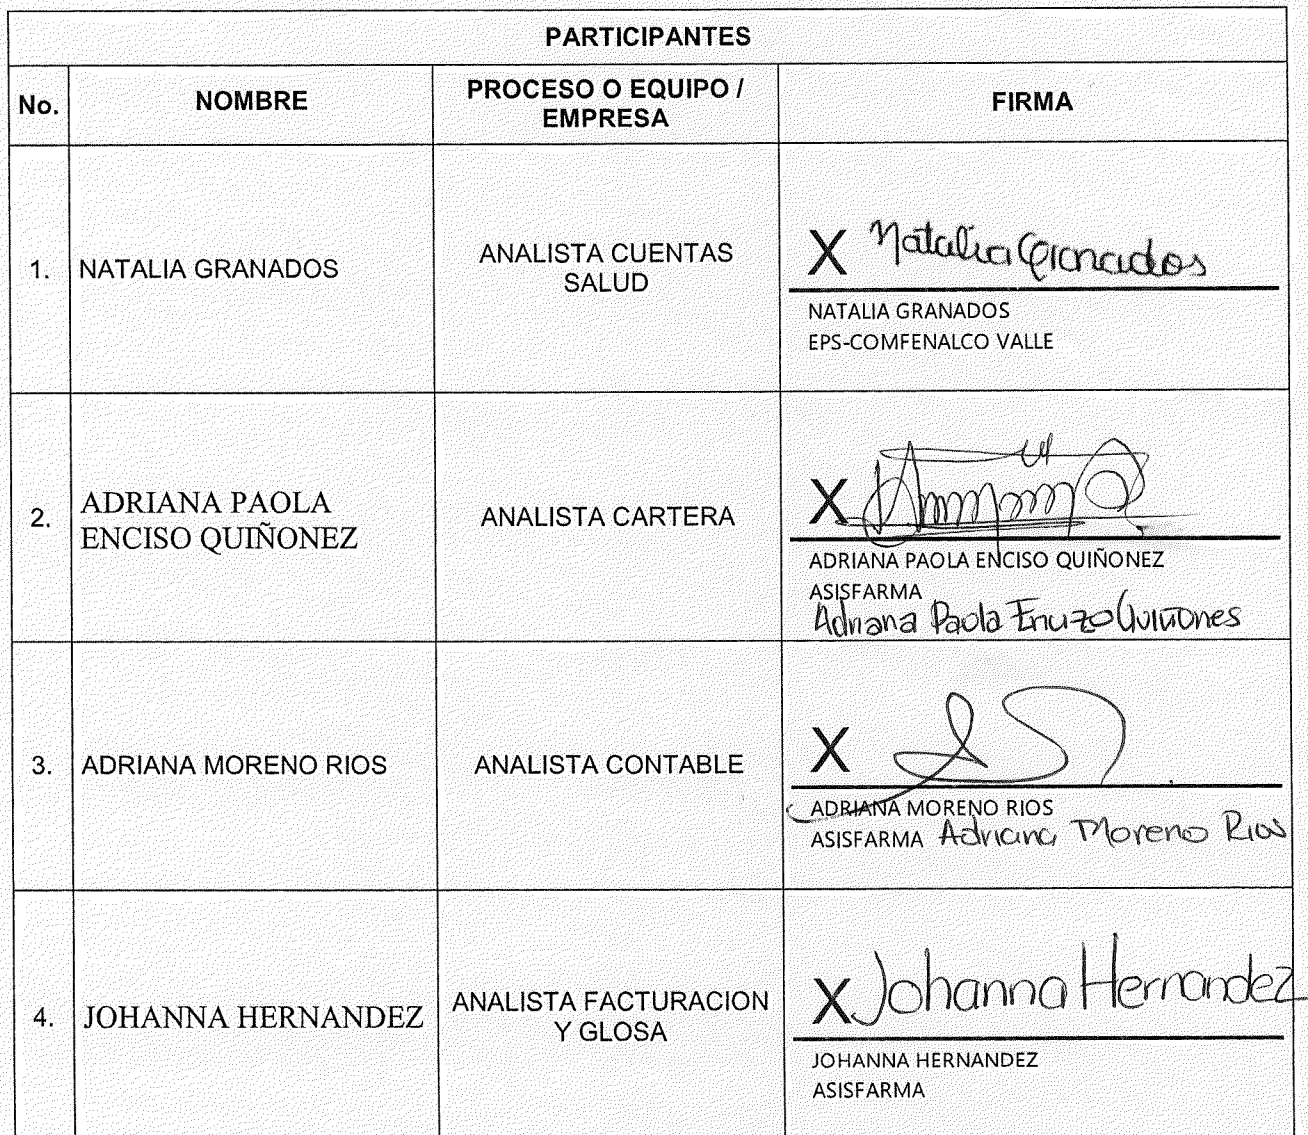 PARTICIPANTES
No.
NOMBRE
PROCESO O EQUIPO /
EMPRESA
FIRMA
1.
NATALIA GRANADOS
ANALISTA CUENTAS
SALUD
X Natalia Granados
NATALIA GRANADOS
EPS-COMFENALCO VALLE
2.
ADRIANA PAOLA
ENCISO QUIÑONEZ
ANALISTA CARTERA
X
ADRIANA PAOLA ENCISO QUIÑONEZ
ASISFARMA
Adriana Paola Enciso Quiñones
3.
ADRIANA MORENO RIOS
ANALISTA CONTABLE
X
ADRIANA MORENO RIOS
ASISFARMA Adriana Moreno Rios
4.
JOHANNA HERNANDEZ
ANALISTA FACTURACION
Y GLOSA
X Johanna Hernandez
JOHANNA HERNANDEZ
ASISFARMA